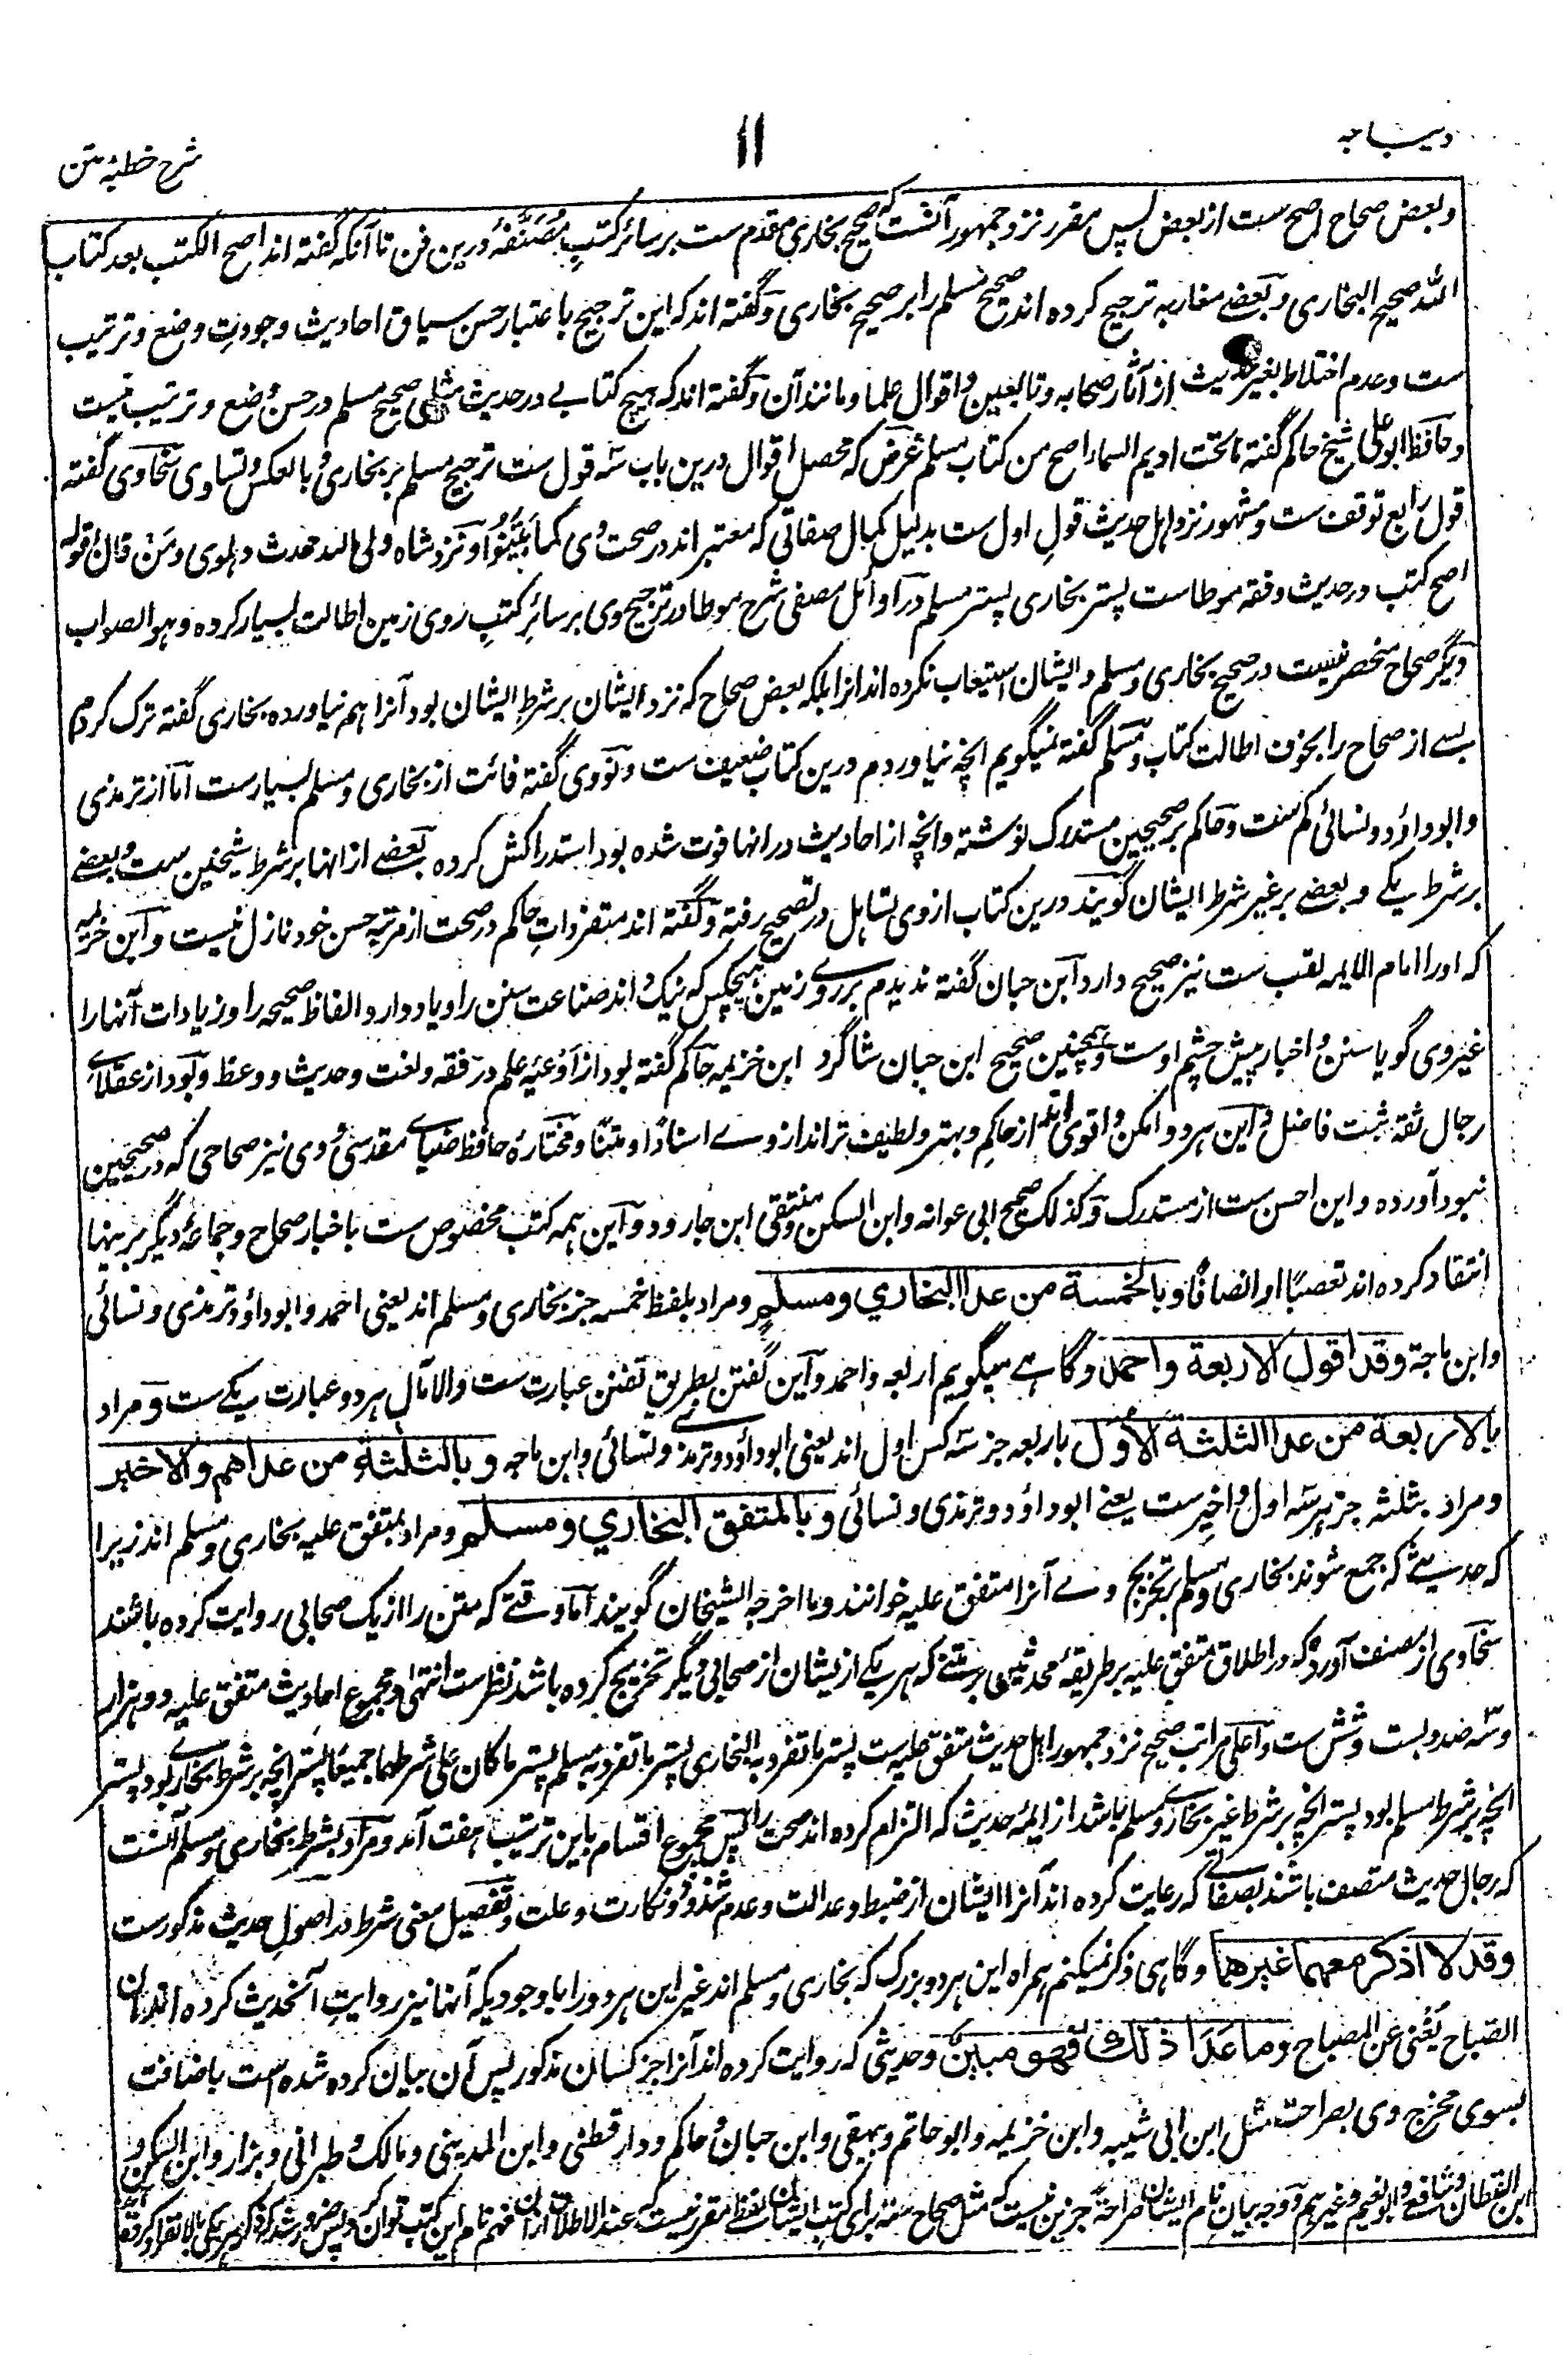 دیباجه
۱۱
شرح خطبهٔ متن
و بعض صحاح اصح ست از بعض پس مقرر نزد جمهور آنست که صحیح بخاری مقدم ست بر سائر کتبِ مُصَنَّفَهٔ درین فن تا آنکه گفته اند اصح الکتب بعد کتاب
الله صحیح البخاری و بعضے مغاربه ترجیح کرده اند صحیح مسلم را بر صحیح بخاری و گفته اند که این ترجیح باعتبار حسن سیاق احادیث و جودتِ وضع و ترتیب
ست و عدم اختلاط بغیر حدیث از آثار صحابه و تابعین و اقوال علما و مانند آن و گفته اند که هیچ کتابے در حدیث مثل صحیح مسلم در حسن وضع و ترتیب نیست
و حافظ ابو علی شیخ حاکم گفته ما تحت ادیم السماء اصح من کتاب مسلم غرض که محصل اقوال درین باب سه قول ست ترجیح مسلم بر بخاری و بالعکس و تساوی سخاوی گفته
قول رابع توقف ست و مشهور نزد اهل حدیث قولِ اول ست بدلیل کمال صفاتی که معتبر اند در صحت وی کما بَیَّنُوا و نزد شاه ولی الله محدث دهلوی و مَنْ قال قوله
اصح کتب در حدیث و فقه موطا ست پستر بخاری پستر مسلم در اوائل مصفی شرح موطا در ترجیح وی بر سائر کتبِ روی زمین اطالت بسیار کرده و هو الصواب
و دیگر صحاح منحصر نیست در صحیح بخاری و مسلم و ایشان استیعاب نکرده اند آنرا بلکه بعض صحاح که نزد ایشان بر شرط ایشان بود آنرا هم نیاورده بخاری گفته ترک کردم
بسے از صحاح را بخوف اطالت کتاب و مسلم گفته نمیگویم آنچه نیاوردم درین کتاب ضعیف ست و نووی گفته فائت از بخاری و مسلم بسیار ست اما از ترمذی
و ابو داؤد و نسائی کم ست و حاکم بر صحیحین مستدرک نوشته و آنچه از احادیث در انها فوت شده بود استدراکش کرده بعضے از انها بر شرط شیخین ست و بعضے
بر شرط یکے و بعضے بر غیر شرط ایشان گویند درین کتاب از وی تساهل در تصحیح رفته و گفته اند متفرداتِ حاکم در صحت از مرتبه حسن خود نازل نیست و ابن خزیمه
که او را امام الایمه لقب ست نیز صحیح دارد ابن حبان گفته ندیدم بر روے زمین هیچکس که نیک داند صناعت سنن را و یاد دارد الفاظ صحیحه را و زیادات آنها را
غیر وی گویا سنن و اخبار پیش چشم اوست و همچنین صحیح ابن حبان شاگرد ابن خزیمه حاکم گفته بود از اَوْعِیَهٔ علم در فقه و لغت و حدیث و وعظ و بود از عقلاے
رجال ثقه ثبت فاضل و این هر دو امکن و اقوی اند از حاکم و بهتر و لطیف تر اند از وے اسنادًا و متنًا و مختارهٔ حافظ ضیاے مقدسی وی نیز صحاحی که در صحیحین
نبود آورده و این احسن ست از مستدرک و کذلک صحیح ابی عوانه و ابن السکن و منتقی ابن جارود و این همه کتب مخصوص ست باخبار صحاح و جماعهٔ دیگر بر اینها
انتقاد کرده اند تعصبًا او انصافًا و بالخمسة من عدا البخاري ومسلم و مراد بلفظ خمسه جز بخاری و مسلم اند یعنی احمد و ابو داؤد و ترمذی و نسائی
و ابن ماجة وقد اقول الاربعة واحمد و گاہے میگویم اربعه و احمد و این گفتن بطریق تفنن عبارت ست و الا مآل هر دو عبارت یکے ست و مراد
بالاربعة من عدا الثلثة الأول باربعه جز سه کس اول اند یعنی ابو داؤد و ترمذی و نسائی و ابن ماجه وبالثلثة من عداهم والاخير
و مراد بثلثه جز هر سه اول و اخیر ست یعنے ابو داؤد و ترمذی و نسائی وبالمتفق البخاري ومسلم و مراد بمتفق علیه بخاری و مسلم اند زیرا
که حدیثے که جمع شوند بخاری و مسلم بر تخریج وے آنرا متفق علیه خوانند و ما اخرجه الشیخان گویند اما وقتے که متن را از یک صحابی روایت کرده باشند
سخاوی از مصنف آورده که در اطلاق متفق علیه بر طریقهٔ محدثین بر متنے که هر یکے از یشان از صحابی دیگر تخریج کرده باشد نظر ست انتهی و مجموع احادیث متفق علیه دو هزار
و سه صد و بست و شش ست و اعلی مراتب صحیح نزد جمهور اهل حدیث متفق علیه ست پستر ما تفرد به البخاری پستر ما تفرد به مسلم پستر ما کان علی شرطهما جمیعًا پستر آنچه بر شرط بخاری بود پستر
آنچه بر شرط مسلم بود پستر آنچه بر شرط غیر بخاری و مسلم باشد از ایمهٔ حدیث که التزام کرده اند صحت را پس مجموع اقسام باین ترتیب هفت آمد و مراد بشرط بخاری و مسلم آنست
که رجال حدیث متصف باشند بصفاتے که رعایت کرده اند آنرا ایشان از ضبط و عدالت و عدم شذوذ و نکارت و علت و تفصیل معنی شرط در اصول حدیث مذکور ست
وقد لا اذكر معهما غيرهما و گاہی ذکر نمیکنم همراه این هر دو بزرگ که بخاری و مسلم اند غیر این هر دو را با وجودیکه آنها نیز روایتِ آنحدیث کرده اند فان
الصَّباح یُغنی عن المصباح وما عَدَا ذلك فهو مبينٌ و حدیثی که روایت کرده اند آنرا جز کسان مذکور پس آن بیان کرده شده است باضافت
بسوی مخرج وی بصراحت مثل ابن ابی شیبه و ابن خزیمه و ابو حاتم و بیهقی و ابن حبان و حاکم و دارقطنی و ابن المدینی و مالک و طبرانی و بزار و ابن السکن و
ابن القطان و شافعی و ابو نعیم و غیرهم و وجه بیان نام ایشان صراحةً جزین نیست که مثل صحاح سته برای کتب ایشان لفظے مقرر نیست که عند الاطلاق ازان فهم نام این کتب توان کرد پس ضرور شد